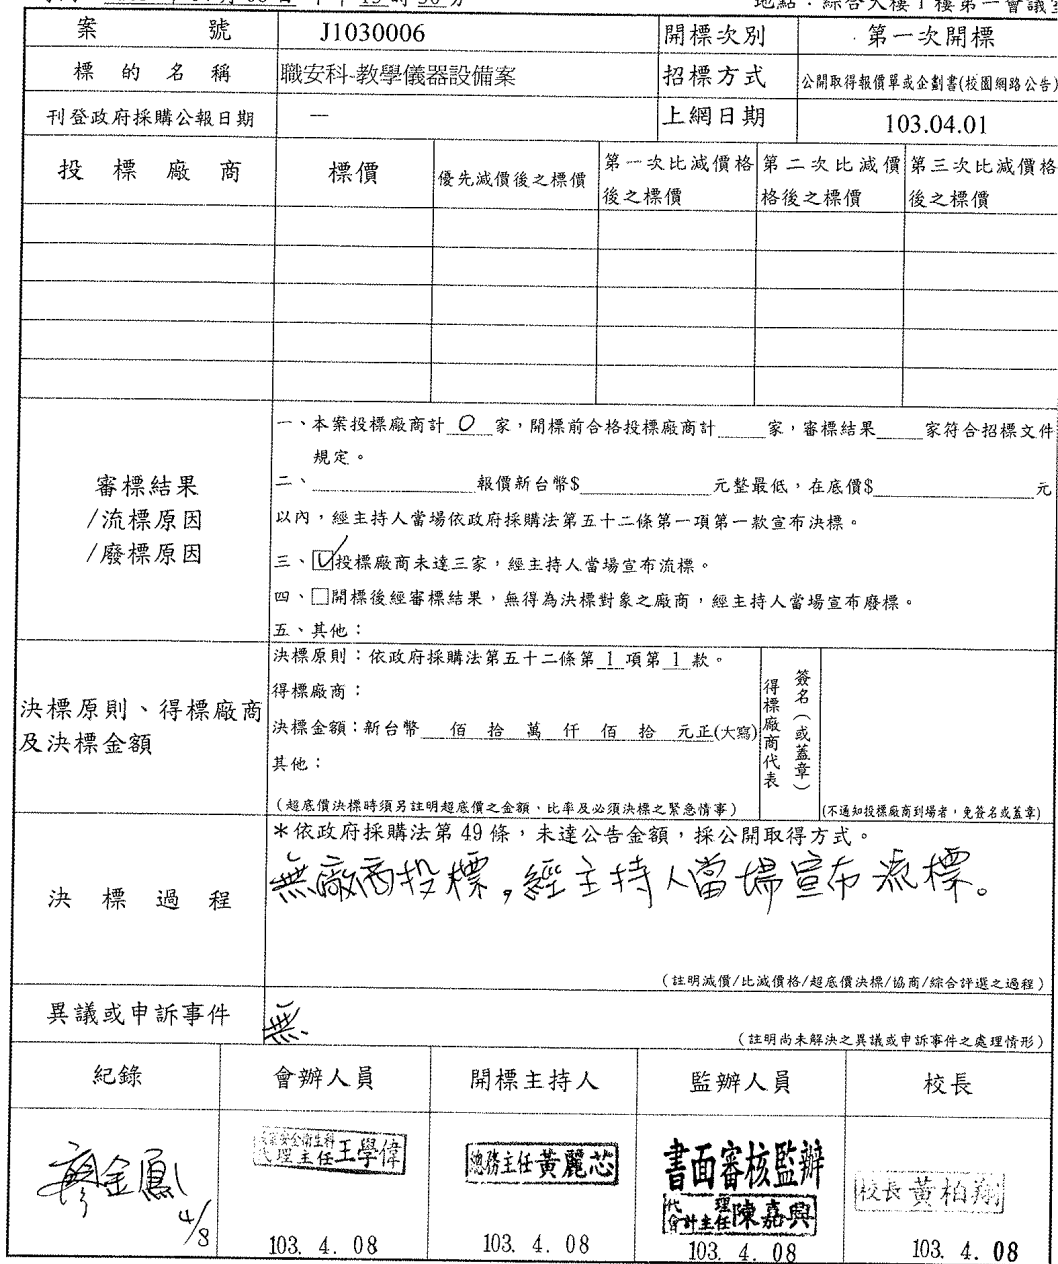 地點：綜合大樓1樓第一會議室
案 號 J1030006 開標次別 第一次開標
標 的 名 稱 職安科-教學儀器設備案 招標方式 公開取得報價單或企劃書(校園網路公告)
刊登政府採購公報日期 — 上網日期 103.04.01
投 標 廠 商 標價 優先減價後之標價 第一次比減價格後之標價 第二次比減價格後之標價 第三次比減價格後之標價
審標結果
/流標原因
/廢標原因
一、本案投標廠商計 0 家，開標前合格投標廠商計 家，審標結果 家符合招標文件
規定。
二、 報價新台幣$ 元整最低，在底價$ 元
以內，經主持人當場依政府採購法第五十二條第一項第一款宣布決標。
三、☑投標廠商未達三家，經主持人當場宣布流標。
四、□開標後經審標結果，無得為決標對象之廠商，經主持人當場宣布廢標。
五、其他：
決標原則、得標廠商
及決標金額
決標原則：依政府採購法第五十二條第 1 項第 1 款。
得標廠商：
決標金額：新台幣 佰 拾 萬 仟 佰 拾 元正(大寫)
其他：
(超底價決標時須另註明超底價之金額、比率及必須決標之緊急情事)
得標廠商代表
簽名(或蓋章)
(不通知投標廠商到場者，免簽名或蓋章)
決 標 過 程
＊依政府採購法第 49 條，未達公告金額，採公開取得方式。
無廠商投標，經主持人當場宣布流標。
(註明減價/比減價格/超底價決標/協商/綜合評選之過程)
異議或申訴事件 無
(註明尚未解決之異議或申訴事件之處理情形)
紀錄 會辦人員 開標主持人 監辦人員 校長
廖金鳳 4/8
職業安全衛生科
代理主任王學偉
103. 4. 08
總務主任黃麗芯
103. 4. 08
書面審核監辦
代理
會計主任陳嘉興
103. 4. 08
校長黃柏翔
103. 4. 08